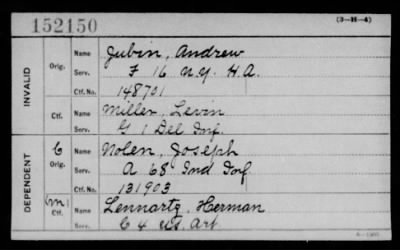 152150 (3-H-4)
INVALID
Orig. Name Jubin, Andrew
Serv. F 16 N.Y. H.A.
Ctf. No. 148701
Ctf. Name Miller, Levin
Serv. G 1 Del Inf.
DEPENDENT
C Orig. Name Nolen, Joseph
Serv. A 68 Ind Inf
Ctf. No. 131903
(m) Ctf. Name Lennartz, Herman
Serv. C 4 US. Art